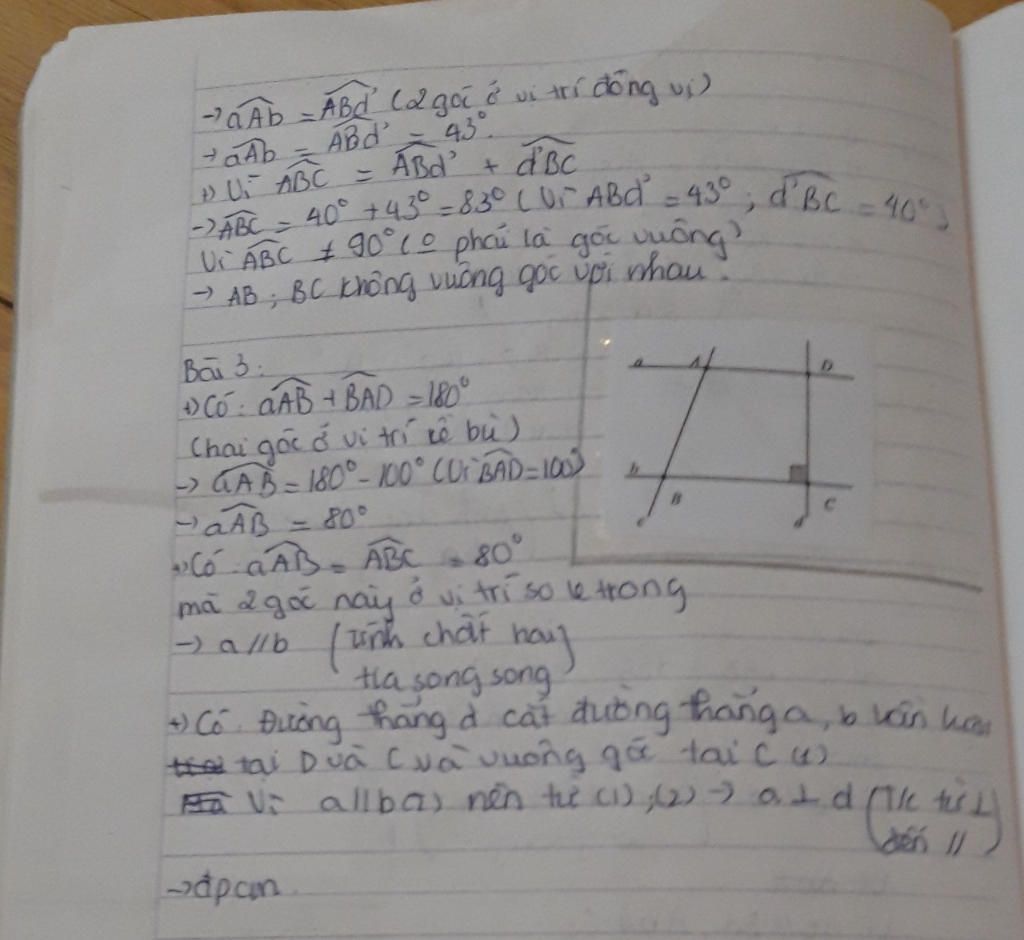 → aAb = ABd' (2 góc ở vị trí đồng vị)
→ aAb = ABd' = 43°.
+) Vì ABC = ABd' + d'BC
→ ABC = 40° + 43° = 83° (Vì ABd' = 43°; d'BC = 40°)
Vì ABC ≠ 90° (o phải là góc vuông)
→ AB; BC không vuông góc với nhau.
Bài 3:
+) Có: aAB + BAD = 180°
(hai góc ở vị trí kề bù)
→ aAB = 180° - 100° (Vì BAD = 100°)
→ aAB = 80°
+) Có: aAB = ABC = 80°
mà 2 góc này ở vị trí so le trong
→ a//b (tính chất hai
tia song song)
+) Có: Đường thẳng d cắt đường thẳng a, b
tại D và C và vuông góc tại C (1)
Vì a//b (2) nên từ (1), (2) → a ⊥ d (T/c từ ⊥
đến //)
→ đpcm
a A D
b B C
c d